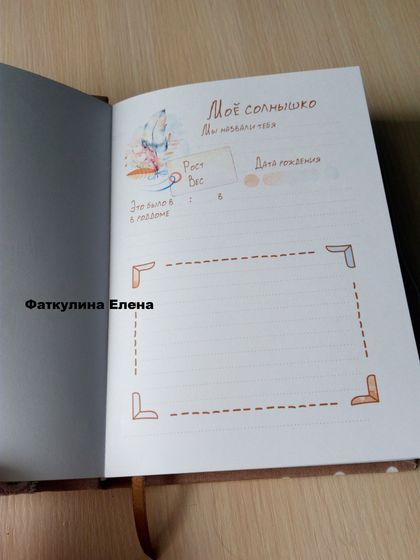 Моё солнышко
Мы назвали тебя
Рост
Вес
Дата рождения
Это было в : в
в роддоме
Фаткулина Елена